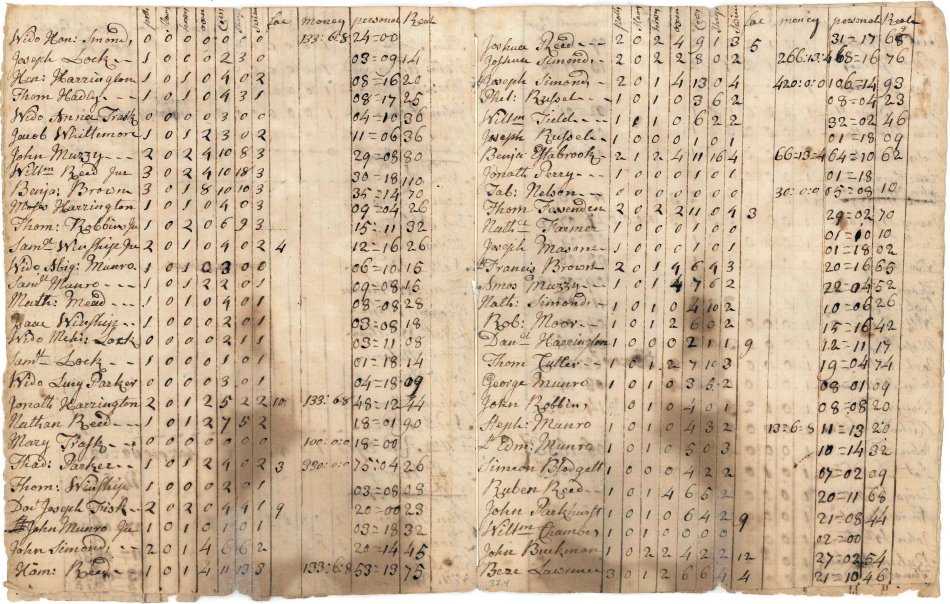 polls horses oxen Cows Sheep Swine fac money personal Real
Wido Han: Simonds 0 0 0 0 0 0 0 133:6:8 24=00
Joseph Lock 1 0 0 0 2 3 0 03=09 14
Hen: Harrington 1 0 1 0 4 0 2 08=16 20
Thom Hadley 1 0 1 0 4 3 1 08=17 25
Wido Anna Trask 0 0 0 0 3 0 0 04=10 36
Jacob Whittemore 1 0 1 2 3 0 2 11=06 36
John Muzzy 2 0 2 4 10 8 3 29=08 80
Willm Reed Jur 3 0 2 4 10 18 3 30=18 110
Benja: Brown 3 0 1 8 10 10 3 35=14 70
Moses Harrington 1 0 1 0 4 0 3 09=04 26
Thom: Robbins Ju 1 0 2 0 6 9 3 15=11 32
Saml Winship Ju 2 0 1 0 4 0 2 4 12=16 26
Wido Abig: Munro 1 0 1 0 3 0 0 06=10 15
Saml Munro 1 0 1 2 2 0 1 09=08 15
Math: Mead 1 0 1 0 4 0 1 08=08 28
Isaac Winship 1 0 0 0 2 0 1 03=08 18
Wido Mehi: Lock 0 0 0 0 2 0 1 03=11 08
Saml Lock 1 0 0 0 1 0 1 01=18 14
Wido Lucy Parker 0 0 0 0 3 0 1 04=18 09
Jonath Harrington 2 0 1 2 5 2 2 10 133:6:8 48=12 44
Nathan Reed 1 0 1 2 7 5 2 18=01 90
Mary Trask 0 0 0 0 0 0 0 100:0:0 18=00
Thad: Parker 1 0 1 2 4 0 2 3 390:0:0 75:04 26
Thom: Winship 1 0 0 0 2 0 1 03=08 08
Doc Joseph Fisk 2 0 2 0 4 4 1 9 20=00 23
John Munro Ju 1 0 1 0 1 0 1 03=18 32
John Simonds 2 0 1 4 6 6 2 20=14 45
Ham: Reed 1 0 1 4 11 13 3 133:6:8 53=13 75
polls horses oxen Cows Sheep Swine fac money personal Reale
Joshua Reed 2 0 2 4 9 1 3 5 31=17 68
Joshua Simonds 2 0 2 2 8 0 2 266:13:4 68=16 76
Joseph Simonds 2 0 1 4 13 0 4 420:0:0 106=14 93
Phil: Russel 1 0 1 0 3 6 2 08=04 23
Willm Tidd 1 1 1 0 6 2 2 32=02 46
Joseph Russel 1 0 0 0 1 0 1 01=18 09
Benja Estabrook 2 1 2 4 11 16 4 66=13=4 64=10 62
Jonath Perry 1 0 0 0 1 0 1 01=18
Tab: Nelson 0 0 0 0 0 0 0 30:0:0 05=08 10
Thom Fessenden 2 0 2 2 11 0 4 3 29=02 70
Nath: Farmer 1 0 0 0 1 0 0 01=10 10
Joseph Mason 1 0 0 0 1 0 1 01=18 02
Francis Brown 2 0 1 4 6 4 3 20=16 65
Amos Muzzy 1 0 1 4 7 6 2 22=04 52
Nath: Simonds 1 0 1 0 4 10 2 10=06 26
Rob: Moor 1 0 1 2 6 0 2 15=16 42
Danl Harrington 1 0 0 0 2 1 1 9 12=11 17
Thom Cutler 1 0 1 2 7 10 3 19=04 74
George Munro 1 0 1 0 3 5 2 08=01 09
John Robbins 1 0 1 0 4 0 1 08=08 20
Steph: Munro 1 0 1 0 4 3 2 13:6:8 11=13 20
Lt Edm: Munro 1 0 1 0 5 0 3 10=14 32
Simeon Blodgett 1 0 0 0 4 2 2 07=02 09
Ruben Reed 1 0 1 4 6 5 2 20=11 68
John Parkhurst 1 0 1 0 6 4 2 9 21=08 44
Willm Chambers 1 0 1 0 0 0 0 02=00
John Buckman 1 0 2 2 4 2 2 12 27=02 54
Beze Lawrence 3 0 1 2 6 6 4 4 21=10 46